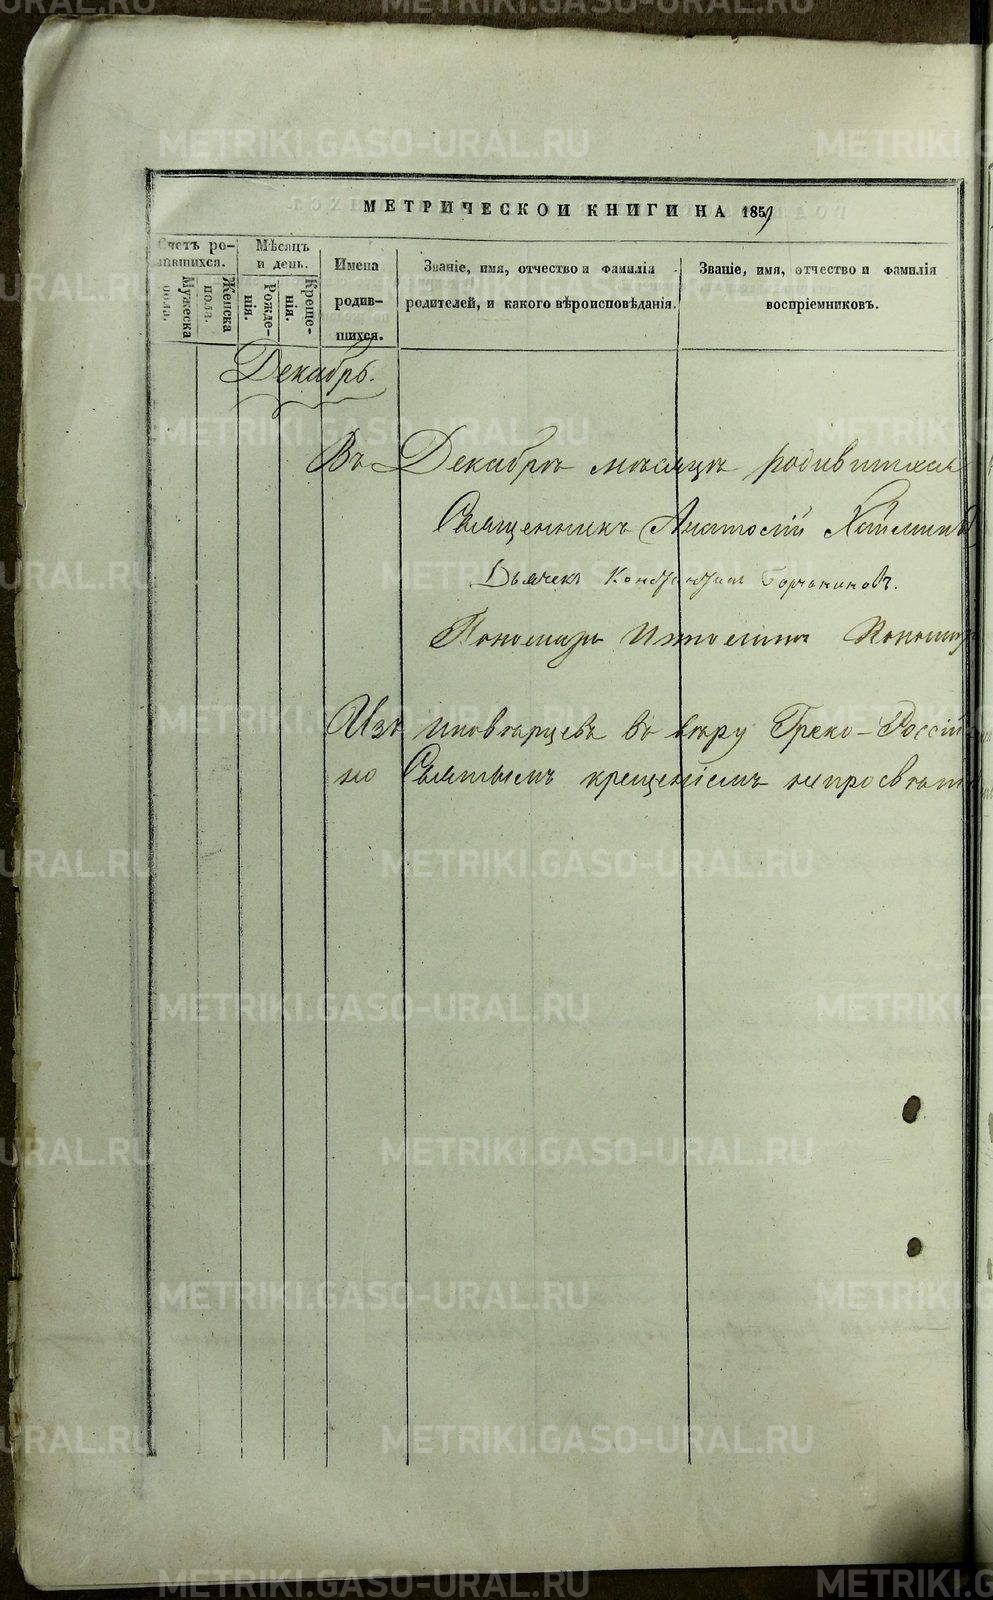 МЕТРИЧЕСКОЙ КНИГИ НА 1859
Счетъ ро-
дившихся.
Мужеска
пола.
Женска
пола.
Мѣсяцъ
и день.
Рожде-
нія.
Креще-
нія.
Имена
родив-
шихся.
Званіе, имя, отчество и фамилія
родителей, и какого вѣроисповѣданія.
Званіе, имя, отчество и фамилія
воспріемниковъ.
Декабрь.
Въ Декабрѣ мѣсяцѣ родившихся
Священникъ Анатолій
Дьячекъ Константинъ
Пономарь
Изъ иновѣрцевъ въ вѣру Греко-Россій
но Святымъ крещеніемъ непросвѣщ
METRIKI.GASO-URAL.RU